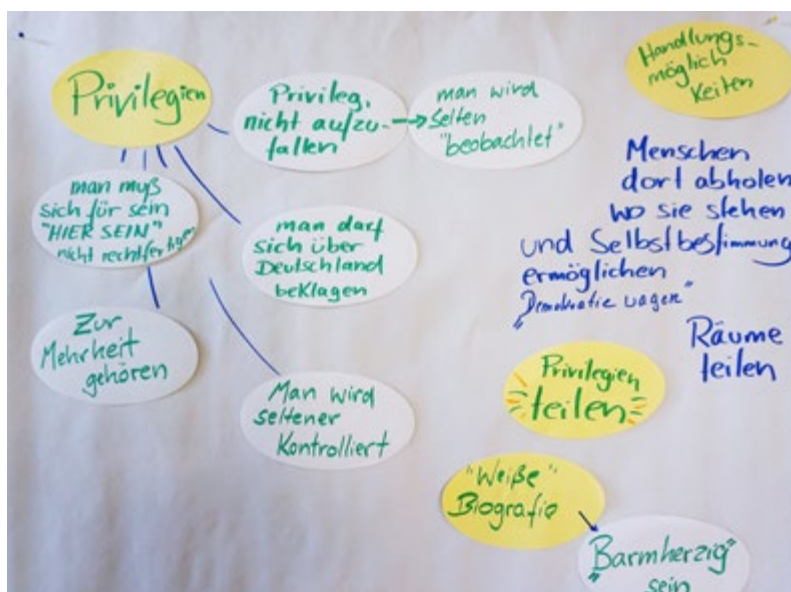 Privilegien
Privileg,
nicht aufzu-
fallen
man wird
selten
"beobachtet"
man muß
sich für sein
"HIER SEIN"
nicht rechtfertigen
man darf
sich über
Deutschland
beklagen
Zur
Mehrheit
gehören
Man wird
seltener
Kontrolliert
Handlungs-
möglich
Keiten
Menschen
dort abholen
wo sie stehen
und Selbstbestimmung
ermöglichen
"Demokratie wagen"
Räume
teilen
Privilegien
teilen
"Weiße"
Biografie
"Barmherzig"
sein